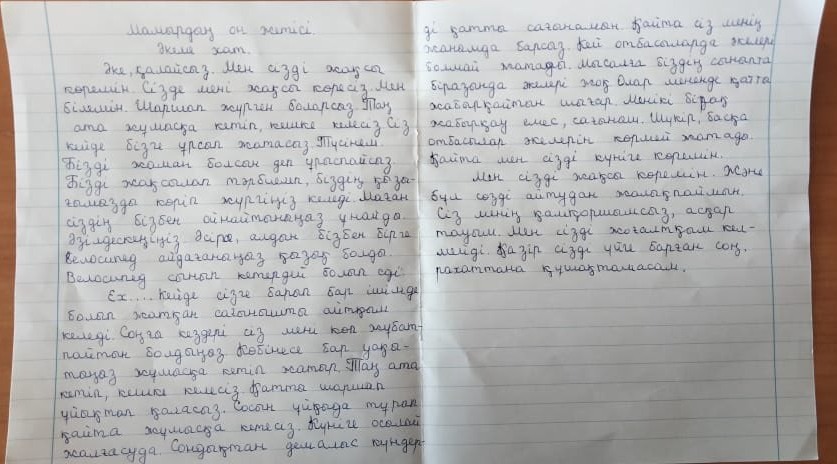 Мамырдаң он жетісі.
Әкеме хат.
Әке, қалайсыз. Мен сізді жақсы
көремін. Сізде мені жақсы көресіз. Мен
білемін. Шаршап жүрген боларсыз. Таң
ата жұмысқа кетіп, кешке келесіз. Сіз
кейде бізге ұрсып жатасаз. Түсінем.
Бізді жаман болсын деп ұрыспайсыз.
Бізді жақсылап тәрбиелеп, біздің қызы-
ғымызды көріп жүргіңіз келеді. Маған
сіздің бізбен ойнайтыныңыз ұнайды.
Әзілдескеңіңіз. Әсіре, алдын бізбен бірге
велосипед айдағаныңыз қызық болды.
Велосипед сынып кетердей болып еді.
Ех.... Кейде сізге барып бар ішімде
болып жатқан сағынышты айтқым
келеді. Соңғы кездері сіз мені көп жұбат-
пайтын болдыңыз. Көбінесе бар уақы-
тыңыз жұмысқа кетіп жатыр. Таң ата
кетіп, кешке келесіз. Қатты шаршап
ұйықтап қаласыз. Сосын ұйқыда тұрап
қайта жұмысқа кетесіз. Күніге осылай
жалғасуда. Сондықтан демалыс күндер-
ді қатты сағынамын. Қайта сіз менің
жанымда барсыз. Кей отбасыларда әкелері
болмай жатады. Мысалға біздің сыныпта
біразында әкелері жоқ. Олар мененде қатты
жабырқайтын шығар. Менікі бірақ
жабырқау емес, сағыным. Шүкір, басқа
отбасылар әкелерін көрмей жатады.
Қайта мен сізді күніге көремін.
Мен сізді жақсы көремін. Және
бұл сөзді айтудан жалықпаймын.
Сіз менің қамқоршымсыз, асқар
тауым. Мен сізді жоғалтқым кел-
мейді. Қазір сізді үйге барған соң,
рахаттана құшақтамасам.